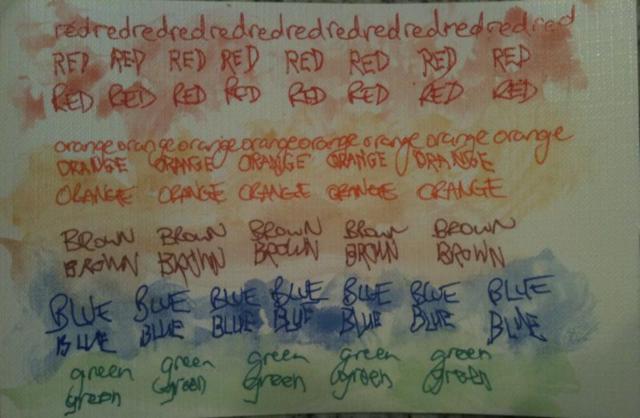 redredredredredredredredredredredredred
RED RED RED RED RED RED RED RED
RED RED RED RED RED RED RED RED
orangeorangeorangeorangeorange orange orange orange
ORANGE ORANGE ORANGE ORANGE ORANGE
ORANGE ORANGE ORANGE ORANGE ORANGE
BROWN BROWN BROWN BROWN BROWN
BROWN BROWN BROWN BROWN BROWN
BLUE BLUE BLUE BLUE BLUE BLUE BLUE
BLUE BLUE BLUE BLUE BLUE BLUE BLUE
green green green green green
green green green green green